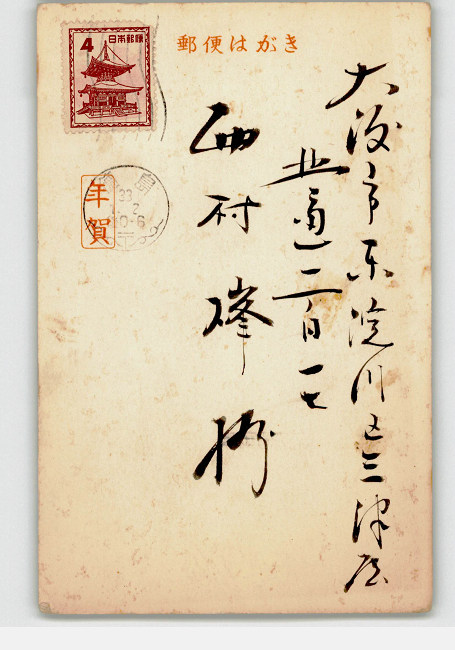 4 日本郵便
郵便はがき
大阪市東淀川区三津屋
北通二百一七
西村峰
年賀
33
10-6